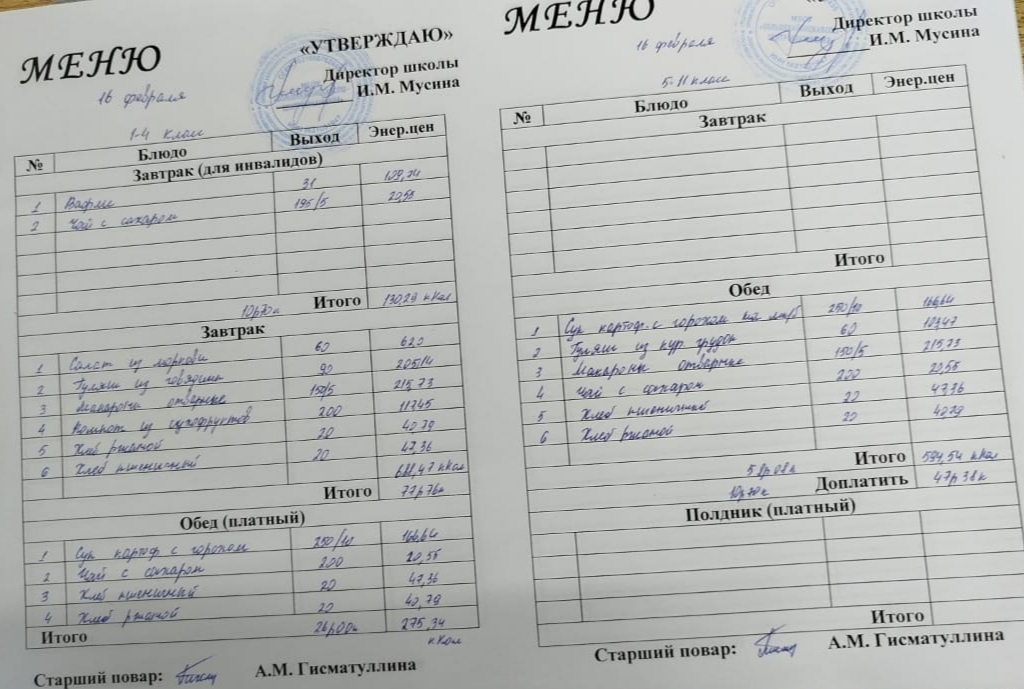 МЕНЮ
«УТВЕРЖДАЮ»
Директор школы
И.М. Мусина
16 февраля
1-4 класс
№ Блюдо Выход Энер.цен
Завтрак (для инвалидов)
1 Вафли 31
2 Чай с сахаром 195/5 20,55
10р70к Итого
Завтрак
1 Салат из моркови 60
2 Гуляш из говядины 90
3 Макароны отварные 150/5 215,73
4 Компот из сухофруктов 200
5 Хлеб ржаной 20 40,79
6 Хлеб пшеничный 20 47,36
Итого 77р76к
Обед (платный)
1 Суп картоф. с горохом 250/10 166,64
2 Чай с сахаром 200 20,55
3 Хлеб пшеничный 20 47,36
4 Хлеб ржаной 20 40,79
Итого 26р00к 275,34
кКал
Старший повар: А.М. Гисматуллина
МЕНЮ
Директор школы
И.М. Мусина
16 февраля
5-11 класс
№ Блюдо Выход Энер.цен
Завтрак
Итого
Обед
1 Суп картоф. с горохом на 250/10 166,64
2 Гуляш из кур. грудок 60 103,47
3 Макароны отварные 150/5 215,73
4 Чай с сахаром 200 20,55
5 Хлеб пшеничный 20 47,36
6 Хлеб ржаной 20 40,79
58р08к Итого 594,54 кКал
10р70к Доплатить 47р38к
Полдник (платный)
Итого
Старший повар: А.М. Гисматуллина